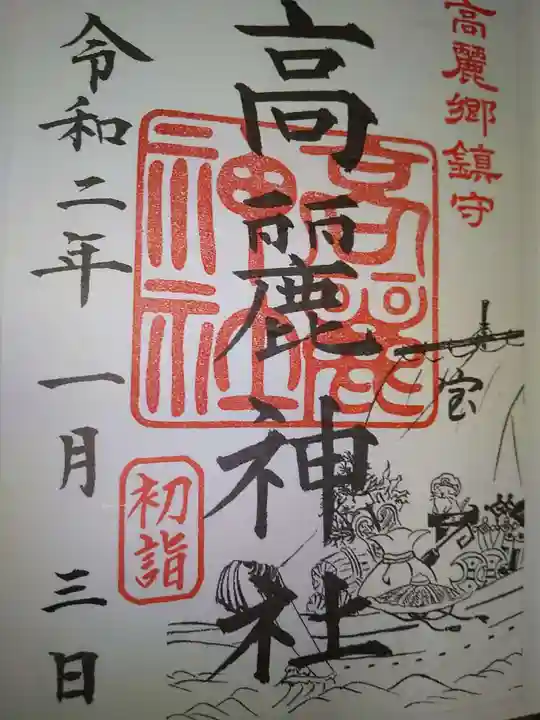 高麗郷鎮守
高麗神社
高麗神社
宝
初詣
令和二年一月三日